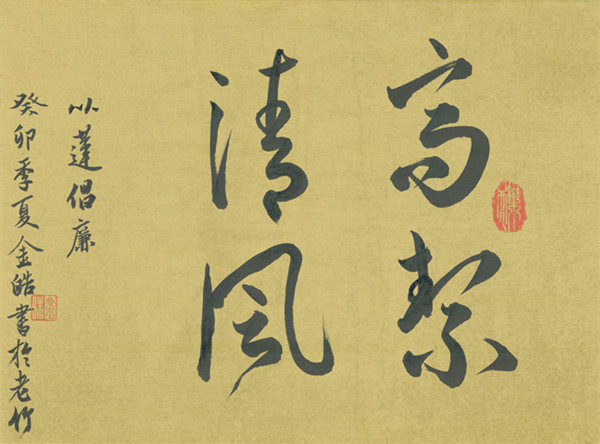 高絜
清風
以蓮倡廉
癸卯季夏金皓書於老竹